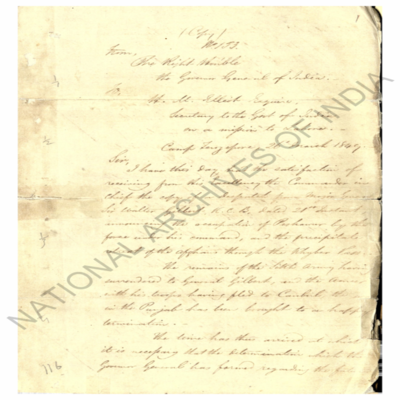 (Copy)
No 172
From,
The Right Honble
the Governor General of India
To
H. M. Elliot Esquire,
Secretary to the Govt of India
on a mission to Lahore
Camp 1849
Sir,
I have this day the satisfaction of
receiving from His Excellency the Commander in
chief the official despatch from Major General
Sir Walter Gilbert K.C.B. dated 21st Instant
announcing the occupation of Peshawur by the
force under his command, and the precipitate
of the Affghans through the Khyber Pass
The remains of the Sikh Army having
surrendered to General Gilbert, and the Ameer
with his troops having fled to Cabul the
in the Punjab has been brought to a happy
termination.
The time has thus arrived at which
it is necessary that the determination which the
Governor General has formed regarding the
116
NATIONAL ARCHIVES OF INDIA